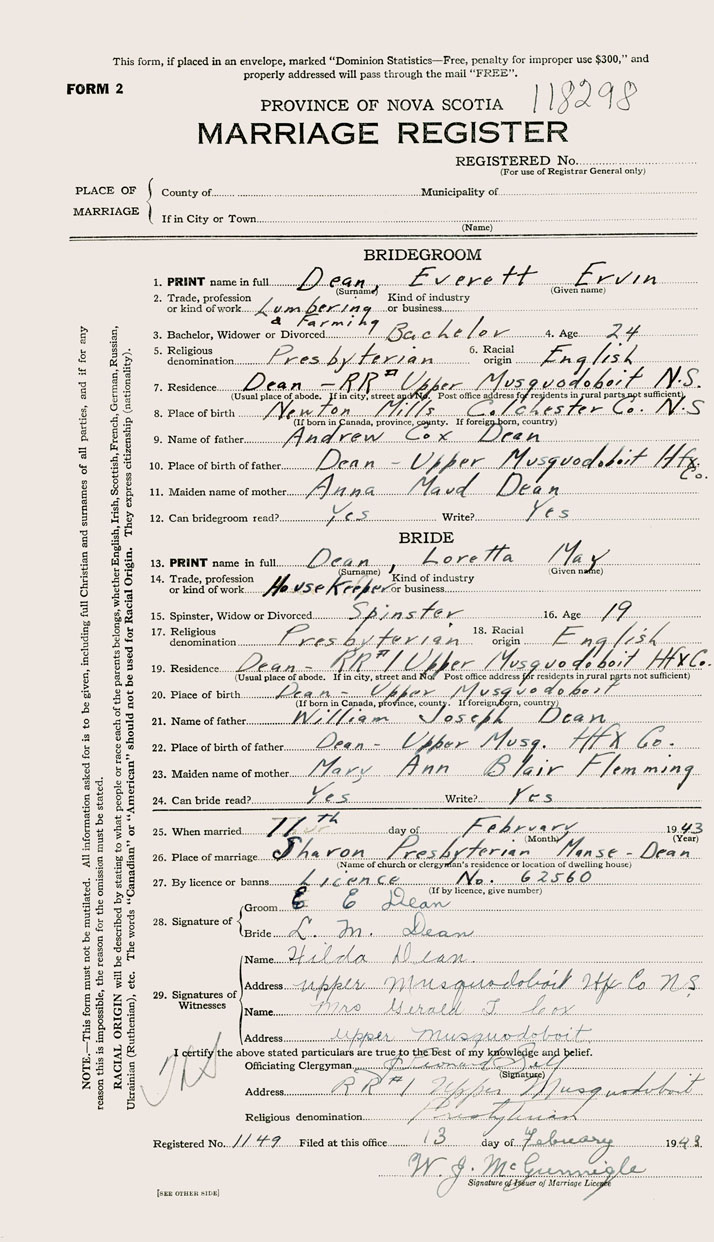 This form, if placed in an envelope, marked "Dominion Statistics—Free, penalty for improper use $300," and
properly addressed will pass through the mail "FREE".
FORM 2
PROVINCE OF NOVA SCOTIA 118298
MARRIAGE REGISTER
REGISTERED No.
(For use of Registrar General only)
PLACE OF MARRIAGE
County of Municipality of
If in City or Town
(Name)
BRIDEGROOM
1. PRINT name in full Dean, Everett Ervin
(Surname) (Given name)
2. Trade, profession or kind of work Lumbering & Farming Kind of industry or business
3. Bachelor, Widower or Divorced Bachelor 4. Age 24
5. Religious denomination Presbyterian 6. Racial origin English
7. Residence Dean - RR# Upper Musquodoboit N.S.
(Usual place of abode. If in city, street and No. Post office address for residents in rural parts not sufficient)
8. Place of birth Newton Mills Colchester Co. N.S
(If born in Canada, province, county. If foreign born, country)
9. Name of father Andrew Cox Dean
10. Place of birth of father Dean - Upper Musquodoboit Hfx Co.
11. Maiden name of mother Anna Maud Dean
12. Can bridegroom read? Yes Write? Yes
BRIDE
13. PRINT name in full Dean, Loretta May
(Surname) (Given name)
14. Trade, profession or kind of work HouseKeeper Kind of industry or business
15. Spinster, Widow or Divorced Spinster 16. Age 19
17. Religious denomination Presbyterian 18. Racial origin English
19. Residence Dean - RR#1 Upper Musquodoboit Hfx Co.
(Usual place of abode. If in city, street and No. Post office address for residents in rural parts not sufficient)
20. Place of birth Dean - Upper Musquodoboit
(If born in Canada, province, county. If foreign born, country)
21. Name of father William Joseph Dean
22. Place of birth of father Dean - Upper Musq. HFX Co.
23. Maiden name of mother Mary Ann Blair Flemming
24. Can bride read? Yes Write? Yes
25. When married 11th day of February 1943
(Month) (Year)
26. Place of marriage Sharon Presbyterian Manse - Dean
(Name of church or clergyman's residence or location of dwelling house)
27. By licence or banns Licence No. 62560
(If by licence, give number)
28. Signature of
Groom E E Dean
Bride L. M. Dean
29. Signatures of Witnesses
Name Hilda Dean.
Address upper Musquodoboit Hfx Co N.S.
Name Mrs Gerald T Cox
Address upper Musquodoboit
I certify the above stated particulars are true to the best of my knowledge and belief.
Officiating Clergyman
(Signature)
Address RR#1 Upper Musquodoboit
Religious denomination Presbyterian
Registered No. 1149 Filed at this office 13 day of February 1943
W. J. McGunnigle
Signature of Issuer of Marriage Licence
[SEE OTHER SIDE]
NOTE.—This form must not be mutilated. All information asked for is to be given, including full Christian and surnames of all parties, and if for any
reason this is impossible, the reason for the omission must be stated.
RACIAL ORIGIN will be described by stating to what people or race each of the parents belongs, whether English, Irish, Scottish, French, German, Russian,
Ukrainian (Ruthenian), etc. The words "Canadian" or "American" should not be used for Racial Origin. They express citizenship (nationality).